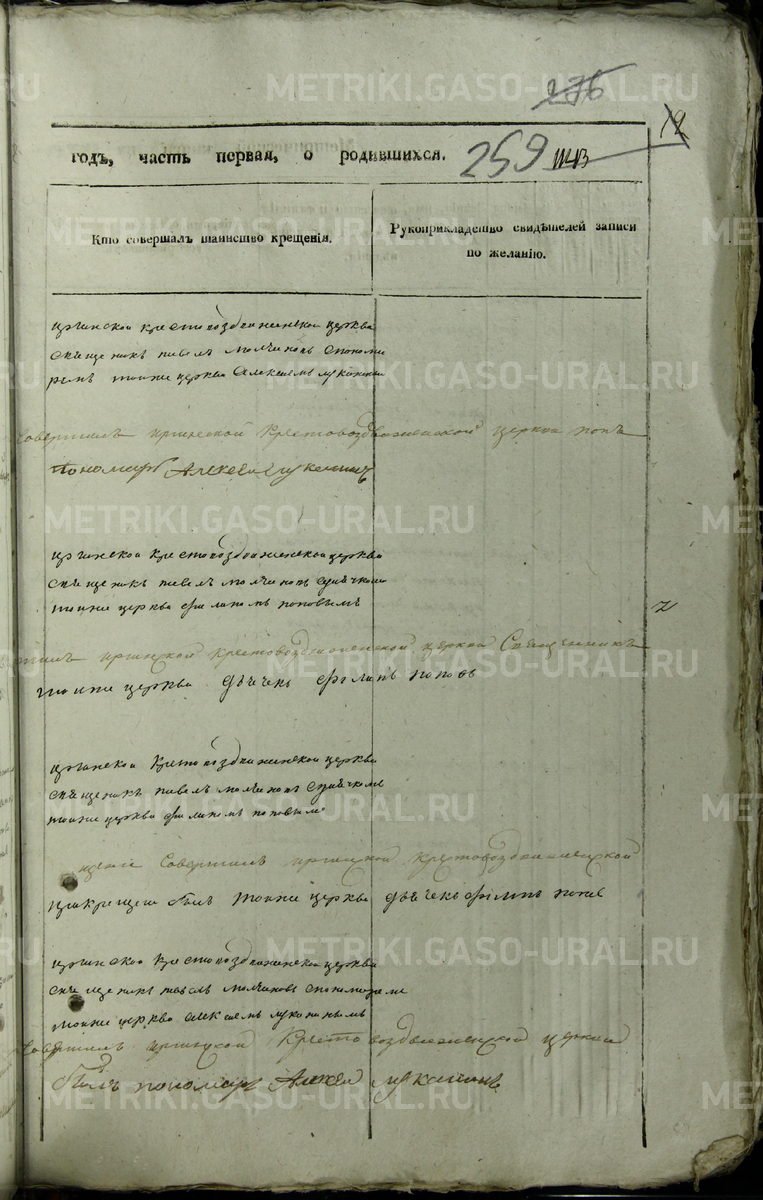 METRIKI.GASO-URAL.RU
276
12
годъ, часть первая, о родившихся. 259
Кто совершалъ таинство крещенія.
Рукоприкладство свидѣтелей записи по желанію.
иргинской крестовоздвиженской церкви
священикъ павелъ молчановъ спономо
ремъ тоиже церкви алексеемъ
Совершилъ иргинской Крестовоздвиженской церкви попъ
пономарь Алексей
иргинской крестовоздвиженской церкви
священикъ павелъ молчановъ здьячкомъ
тоиже церкви филипомъ поповымъ
иргинской крестовоздвиженской церкви Священникъ
тоиже церкви дьячекъ филипъ поповъ
иргинской Крестовоздвиженской церкви
священикъ павелъ молчановъ здьячкомъ
тоиже церкви филипомъ поповымъ
щение Совершилъ иргинской крестовоздвиженской
прикрещении былъ тоиже церкви дьячекъ филипъ
иргинской крестовоздвиженской церкви
священикъ павелъ молчановъ спономаремъ
тоиже церкви алексеемъ
Совершилъ иргинской Крестовоздвиженской церкви
былъ пономарь Алексей